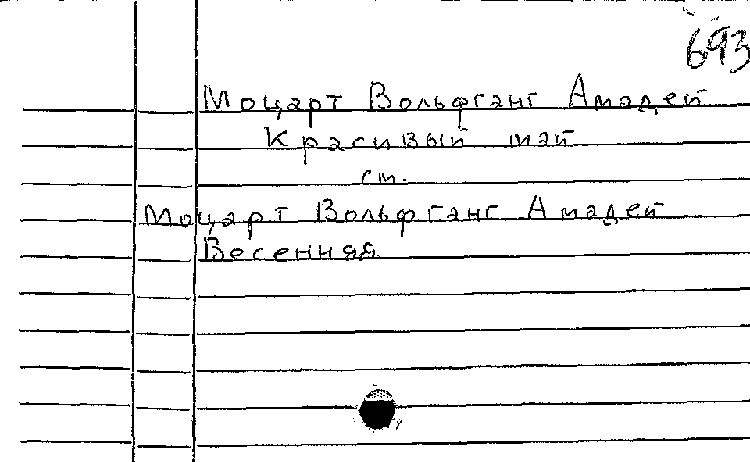 693
Моцарт Вольфганг Амадей
Красивый май
см.
Моцарт Вольфганг Амадей
Весенняя